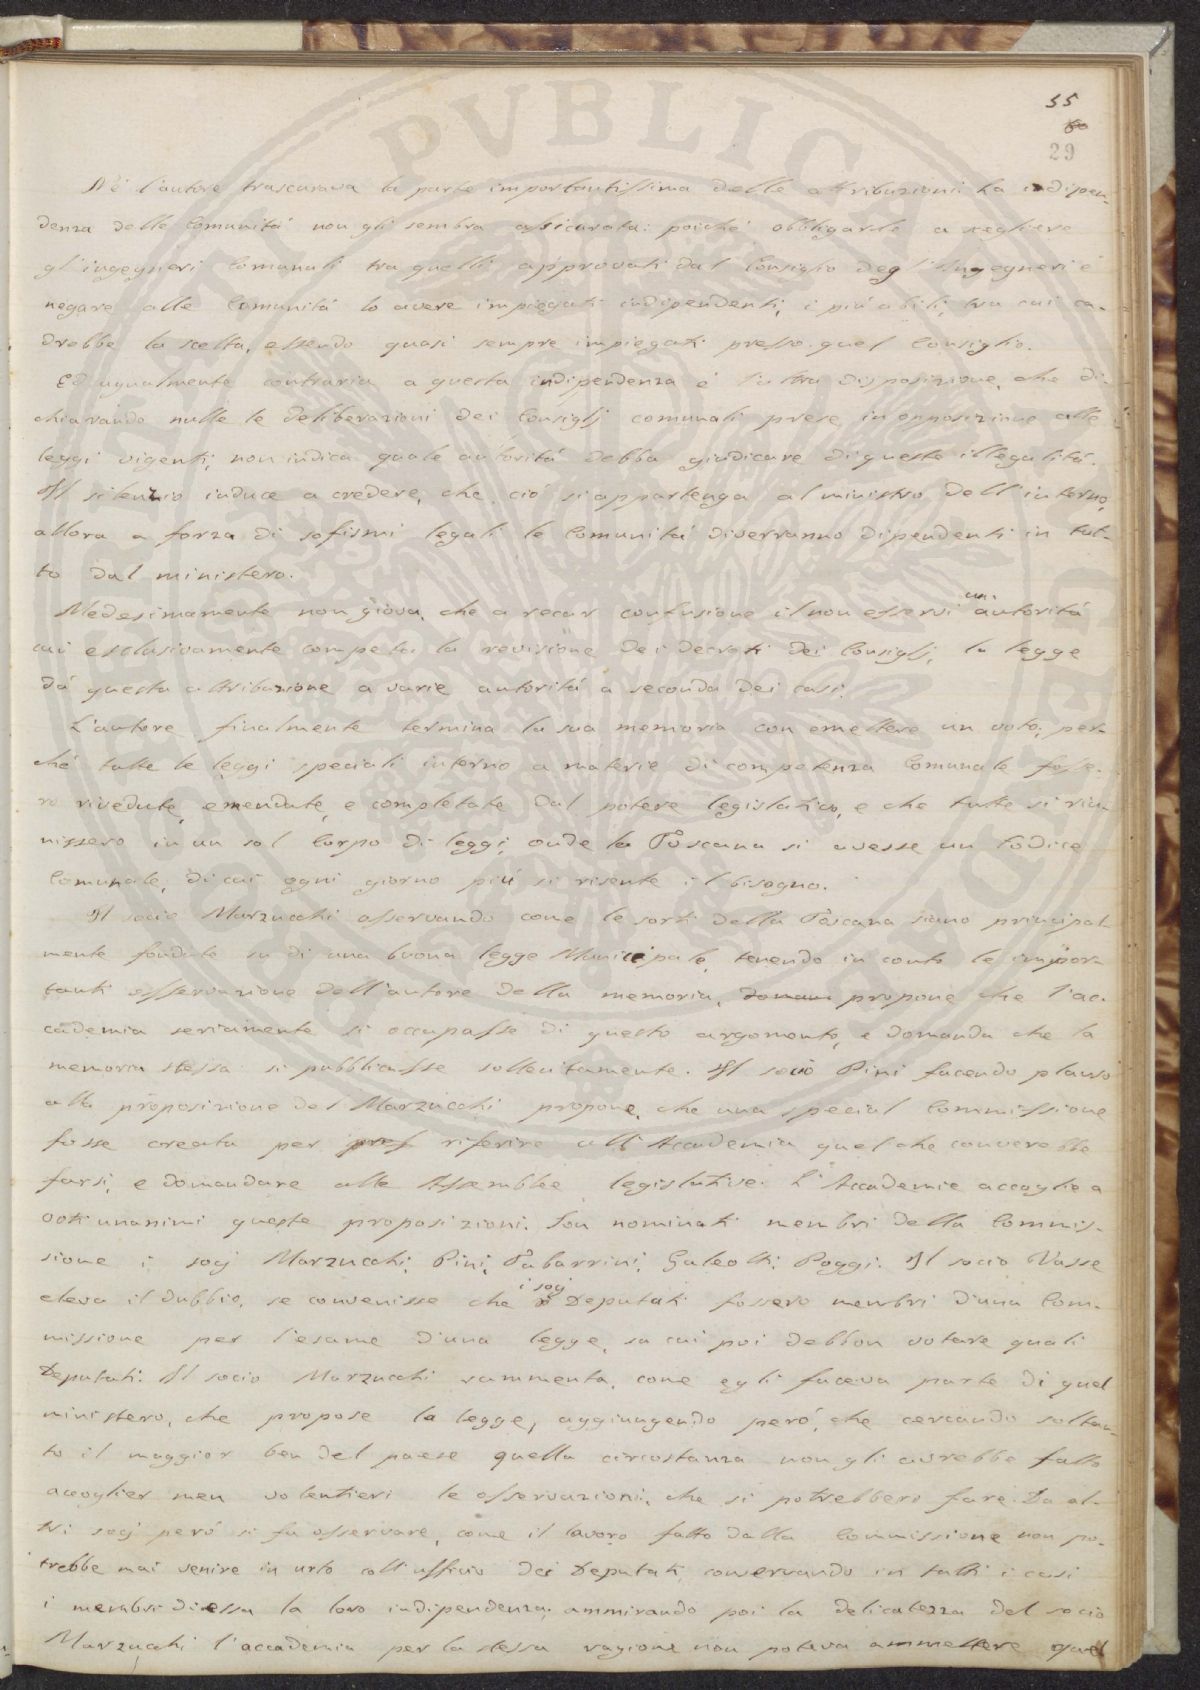 55
60
29
Nè l'autore trascurava la parte importantissima delle attribuzioni. La indipen-
denza delle Comunità non gli sembra assicurata: poiché obbligarle a scegliere
gl'ingegneri Comunali tra quelli approvati dal Consiglio degl'Ingegneri è
negare alle Comunità lo avere impiegati indipendenti, i più abili, tra cui ca-
drebbe la scelta, essendo quasi sempre impiegati presso quel Consiglio.
Ed ugualmente contraria a questa indipendenza è l'altra disposizione, che di-
chiarando nulle le deliberazioni dei Consiglj comunali prese in opposizione alle
leggi vigenti, non indica quale autorità debba giudicare di queste illegalità.
Il silenzio induce a credere, che ciò si appartenga al ministro dell'interno,
allora a forza di sofismi legali le Comunità diverranno dipendenti in tut-
to dal ministero.
Medesimamente non giova, che a recar confusione il non esservi un'autorità
cui esclusivamente competa la revisione dei decreti dei Consiglj, la legge
dà questa attribuzione a varie autorità a seconda dei casi.
L'autore finalmente termina la sua memoria con emettere un voto, per-
ché tutte le leggi speciali intorno a materie di competenza Comunale fosse-
ro rivedute, emendate, e completate dal potere legislativo, e che tutte si riu-
nissero in un sol Corpo di leggi, onde la Toscana si avesse un Codice
Comunale, di cui ogni giorno più si risente il bisogno.
Il socio Marzucchi osservando come le sorti della Toscana siano principal-
mente fondate su di una buona legge Municipale, tenendo in conto le impor-
tanti osservazione dell'autore della memoria, propone che l'ac-
cademia seriamente si occupasse di questo argomento, e domanda che la
memoria stessa si pubblicasse sollecitamente. Il socio Pini facendo plauso
alla proposizione del Marzucchi propone, che una special Commissione
fosse creata per riferire all'Accademia quel che converebbe
farsi, e domandare alle Assemblee legislative. L'Accademie accoglie a
voti unanimi queste proposizioni. Son nominati membri della Commis-
sione i socj Marzucchi, Pini, Tabarrini, Galeotti, Poggi. Il socio Vasse
eleva il dubbio, se convenisse che i socj Deputati fossero membri d'una Com-
missione per l'esame d'una legge, su cui poi debbon votare quali
Deputati. Il socio Marzucchi rammenta, come egli faceva parte di quel
ministero, che propose la legge, aggiungendo però, che cercando soltan-
to il maggior ben del paese quella circostanza non gli avrebbe fatto
accoglier men volentieri le osservazioni, che si potrebbero fare. Da al-
tri socj però si fa osservare, come il lavoro fatto dalla Commissione non po-
trebbe mai venire in urto coll'ufficio dei Deputati, conservando in tutti i casi
i membri di essa la loro indipendenza; ammirando poi la delicatezza del socio
Marzucchi l'accademia per la stessa ragione non poteva ammettere quel